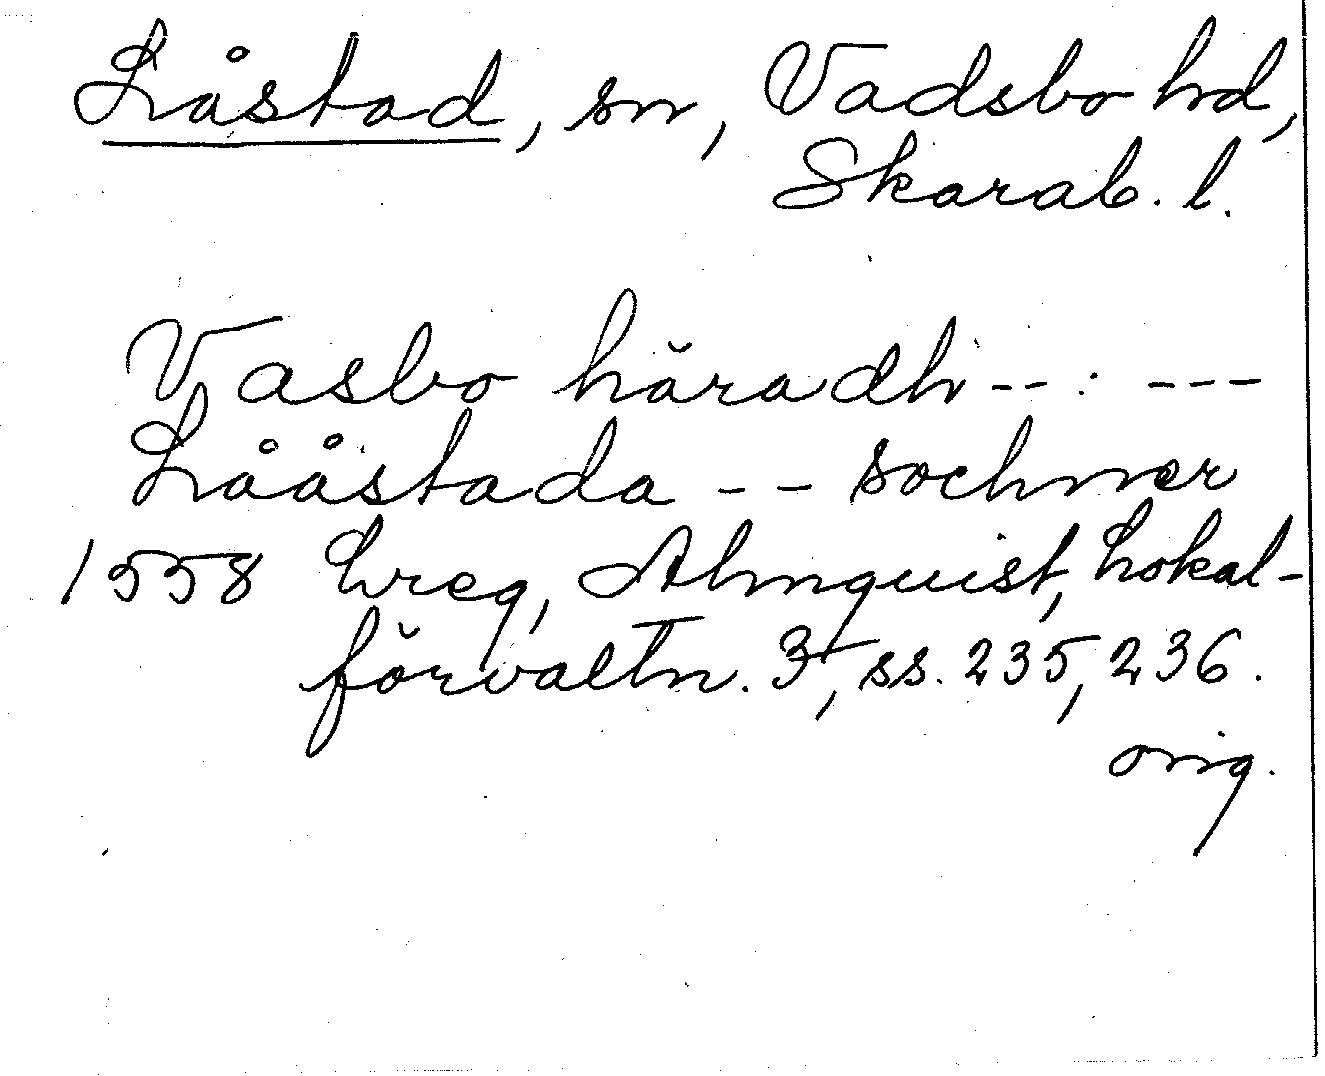 Låstad, sn, Vadsbo hd,
Skarab. l.
Vasbo häradh -- : ---
Lååstada -- sochner
1558 Lreg, Almquist, Lokal-
förvaltn. 3, ss. 235, 236.
orig.